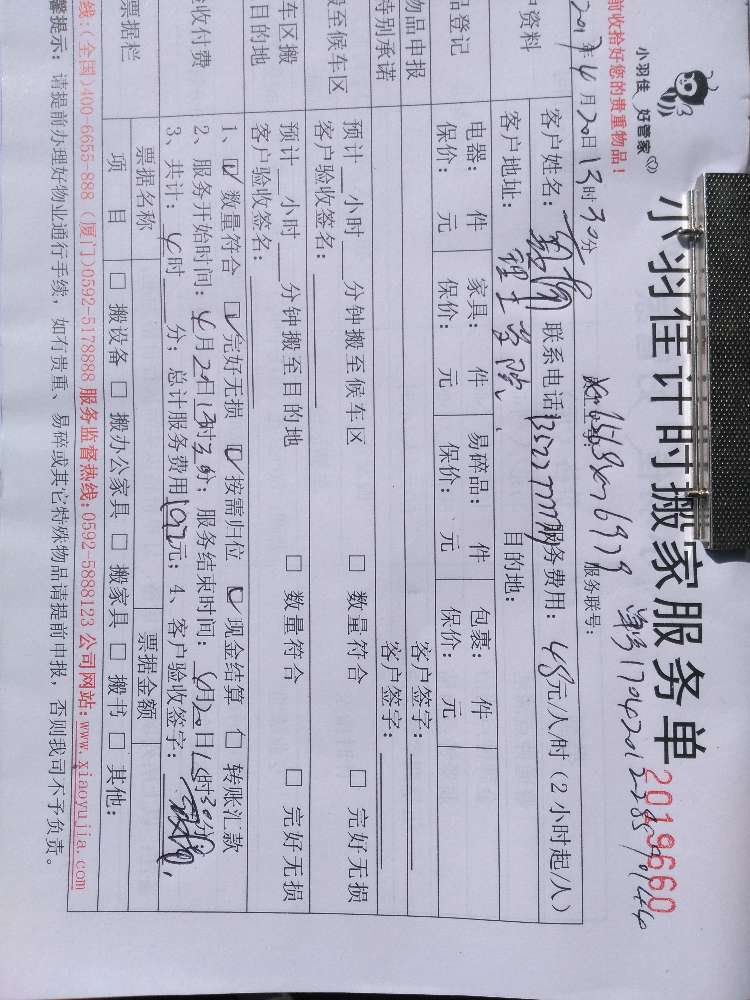 小羽佳 好管家
小羽佳计时搬家服务单
2019660
前收拾好您的贵重物品！
单号1704201228579144
2017年4月20日13时30分
服务联号：
户资料
客户姓名：
联系电话
服务费用：48元/人/时（2小时起/人）
客户地址：理工学院
目的地：
品登记
电器： 件 家具： 件 易碎品： 件 包裹： 件
保价： 元 保价： 元 保价： 元 保价： 元
物品申报
客户签字：
特别承诺
客户签字：
搬至候车区
预计__小时__分钟搬至候车区 □ 数量符合 □ 完好无损
客户验收签名：
车区搬
目的地
预计__小时__分钟搬至目的地 □ 数量符合 □ 完好无损
客户验收签名：
验收付费
1、☑ 数量符合 ☑ 完好无损 ☑ 按需归位 ☑ 现金结算 □ 转账汇款
2、服务开始时间：4月20日13时30分；服务结束时间：4月20日15时30分
3、共计：4时__分；总计服务费用192元；4、客户验收签字：
票据栏
票据名称 票据金额
项 目 □ 搬设备 □ 搬办公家具 □ 搬家具 □ 搬书 □ 其他:
线:(全国)400-6655-888 (厦门)0592-5178888 服务监督热线:0592-5888123 公司网站:www.xiaoyujia.com
馨提示：请提前办理好物业通行手续，如有贵重、易碎或其它特殊物品请提前申报，否则我司不予负责。